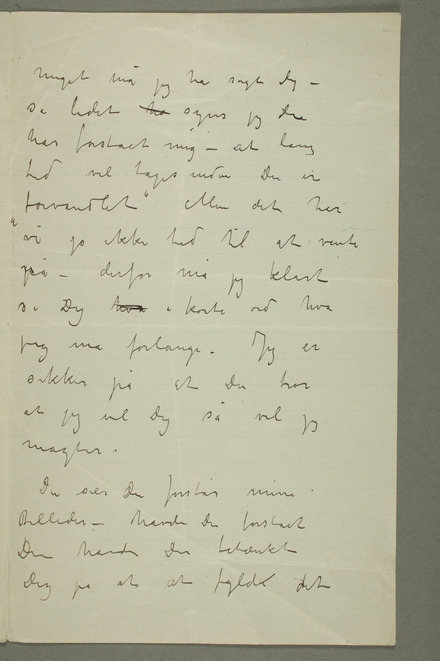 meget må jeg ha sagt Dig –
så lidet ha synes jeg Du
har forstået mig – at lang
tid vil tages inden Du er
forvandlet" Men det har
vi jo ikke tid til at vente
på – derfor må jeg klart
si Dig hva i korte ord hva
jeg må forlange. Jeg er
sikker på at Du tror
at jeg vil Dig så vel jeg
magter.
Du sier Du forstår mine
billeder – havde Du forstået
Dem havde Du betænkt
Dig på at fylde det